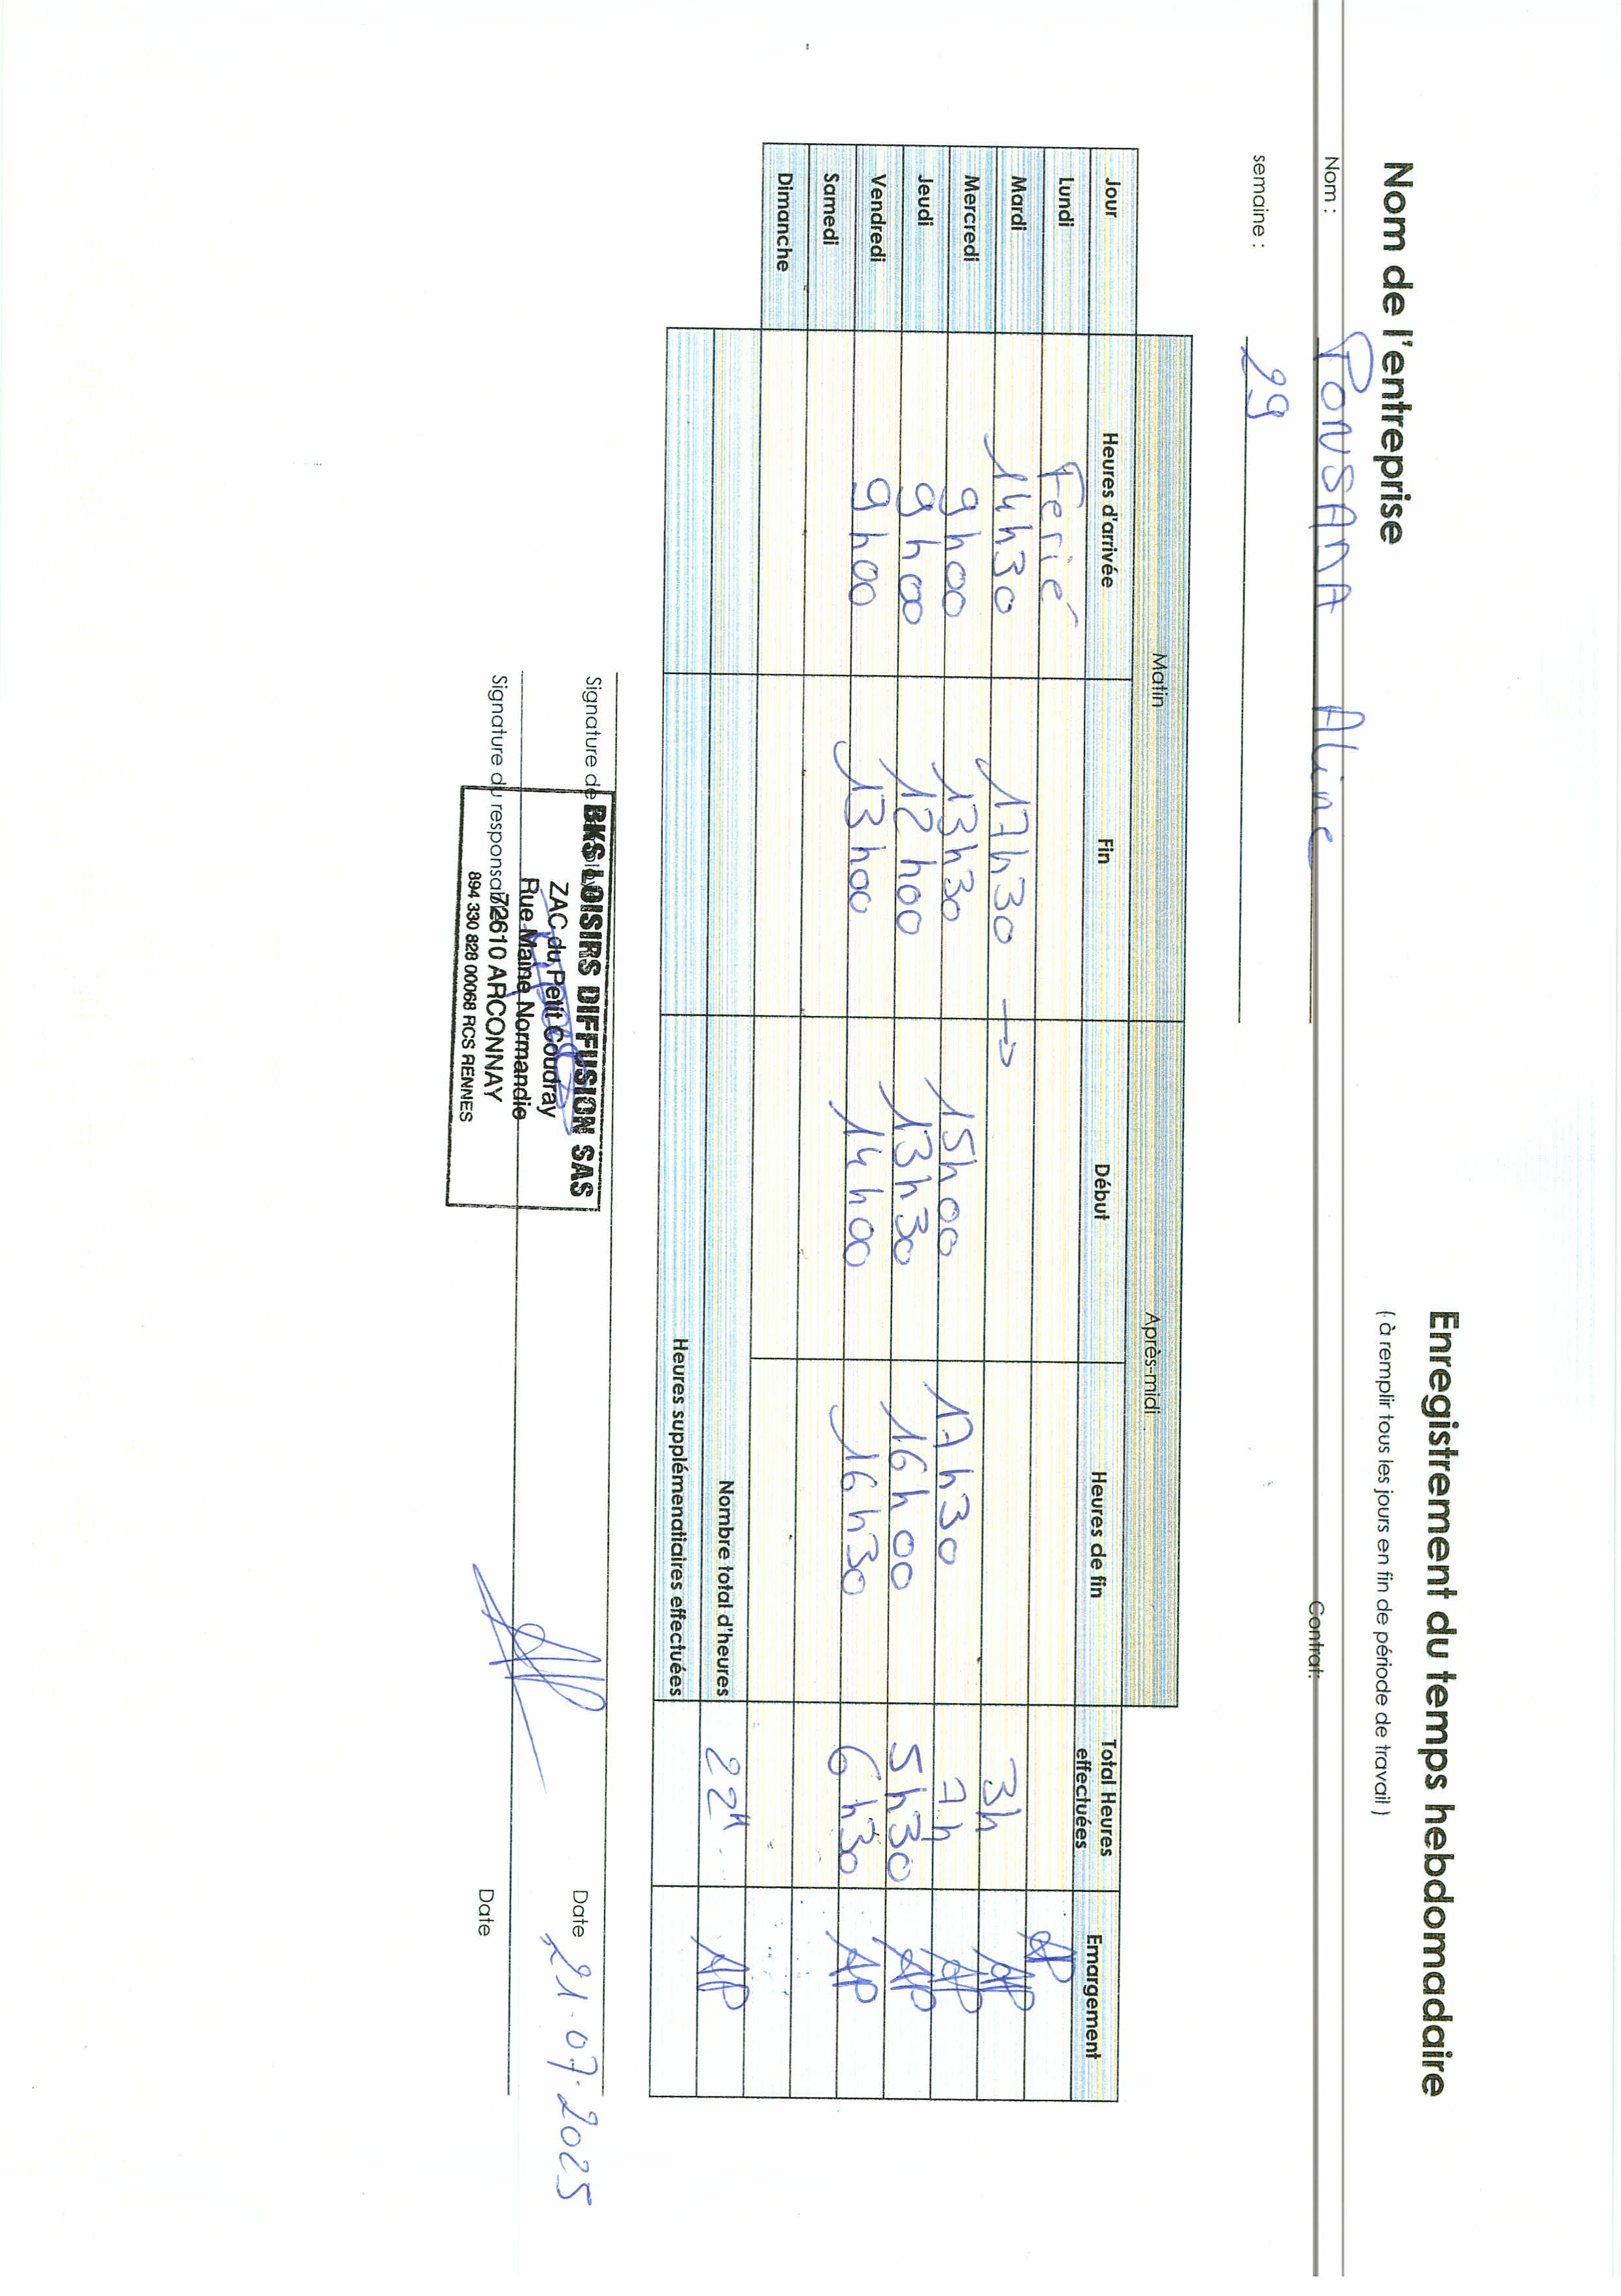 Nom de l'entreprise
Enregistrement du temps hebdomadaire
( à remplir tous les jours en fin de période de travail )
Nom : PONSANA Aline
Contrat:
semaine : 29
Matin Après-midi
Jour Heures d'arrivée Fin Début Heures de fin Total Heures effectuées Emargement
Lundi Ferié AP
Mardi 14h30 17h30 → 3h AP
Mercredi 9h00 13h30 15h00 17h30 7h AP
Jeudi 9h00 12h00 13h30 16h00 5h30 AP
Vendredi 9h00 13h00 14h00 16h30 6h30 AP
Samedi
Dimanche
Nombre total d'heures 22H AP
Heures supplémenatiaires effectuées
Signature de
Date 21.07.2025
Signature du responsable
Date
BKS LOISIRS DIFFUSION SAS
ZAC du Petit Coudray
Rue Maine Normandie
72610 ARCONNAY
894 330 828 00068 RCS RENNES